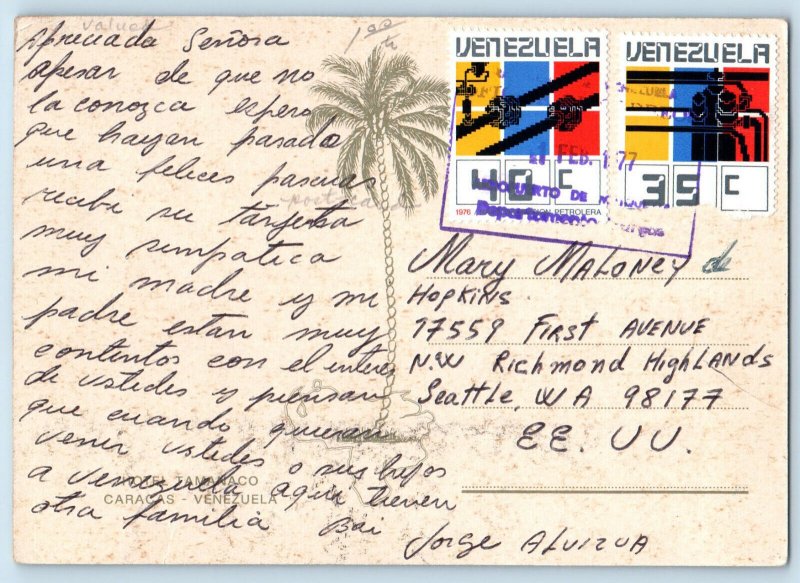 value
1 00/n
Apreciada Señora
apesar de que no
la conozca espero
que hayan pasado
una felices pascuas
recibi su targeta
muy simpatica
mi madre y mi
padre estan muy
contentos con el interes
de ustedes y piensan
que cuando quieran
venir ustedes o sus hijos
a Venezuela aqui tienen
otra familia Bai
Jorge ALVIZUA
postcard
HOTEL TAMANACO
CARACAS - VENEZUELA
VENEZUELA
40 C
1976 PETROLERA
VENEZUELA
35 C
FEB. 1977
AEROPUERTO DE
Departamento
Mary MALONEY de
HOPKINS
17559 FIRST AVENUE
N.W Richmond HighLANDS
Seattle, WA 98177
EE. UU.